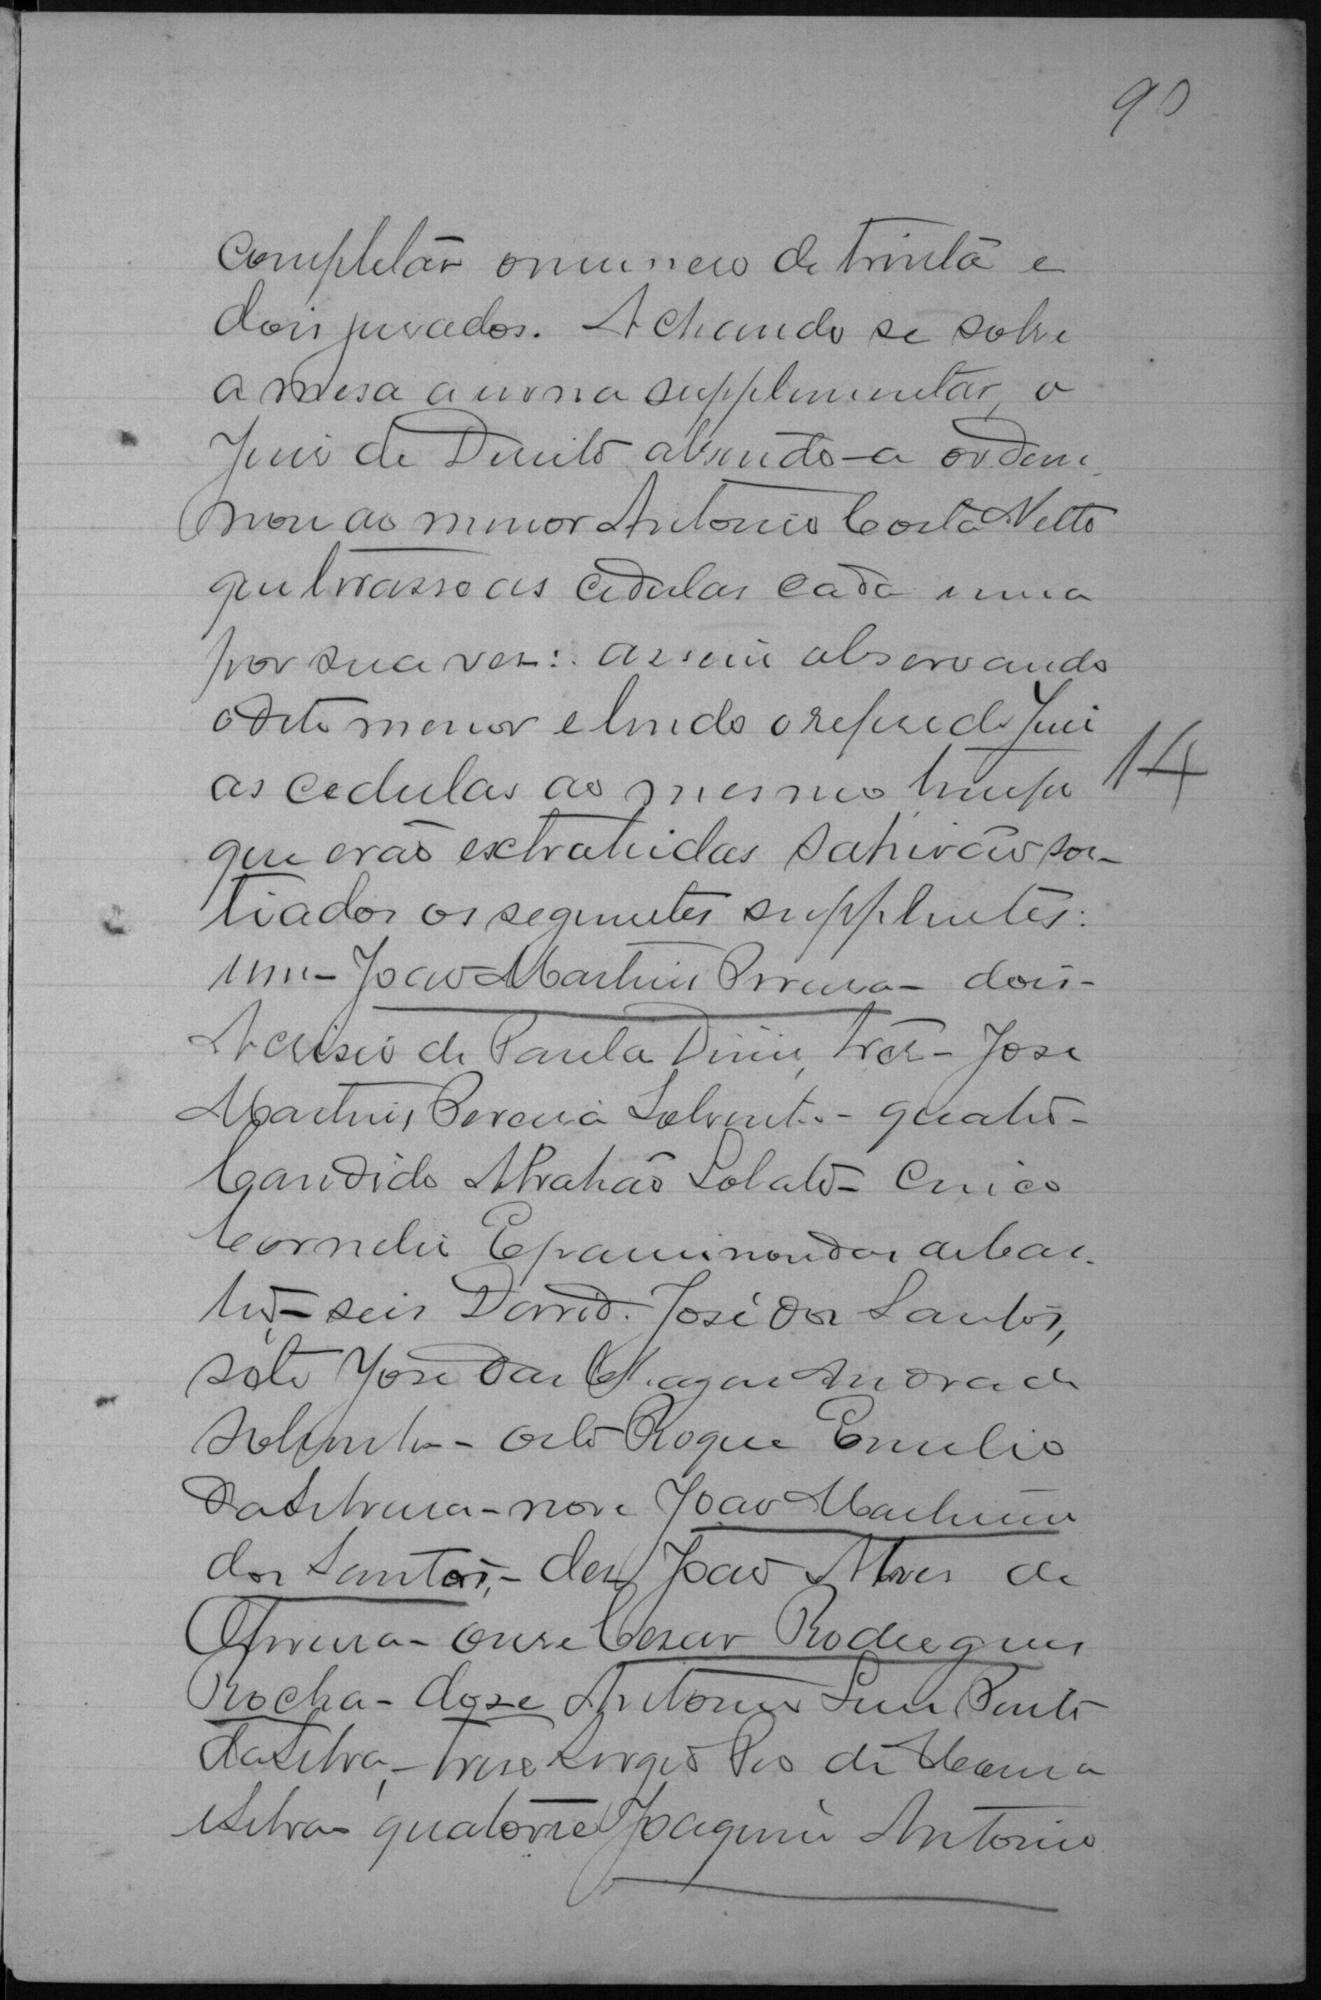 90
completar o numero de trinta e
dois jurados. Achando se sobre
a mesa a urna supplementar, o
Juis de Direito abrindo-a ordem
nou ao menor Antonio Costa Netto
que tirasse as cedulas cada uma
por sua vez: assim observando
o dito menor e lendo o referido Juis
as cedulas ao mesmo tempo
14
que erão extrahidas sahirão sor-
tiados os seguintes supplentes:
um - João Martins Pereira - dois -
Acrisio de Paula Diniz, tres - José
Martins Pereira Sobrinho - quatro -
Candido Abrahão Lobato - cinco
Cornelio Epaminondas
seis David José dos Santos,
sete José das Chagas Andrade
Sobrinho - oito Roque Emilio
da Silveira - nove João Martins
dos Santos, - dez João Alves de
Oliveira - onze Cesar Rodrigues
Rocha - doze Antonio Luis Pinto
da Silva, - treze Sergio Pio de
e Silva quatorze Joaquim Antonio